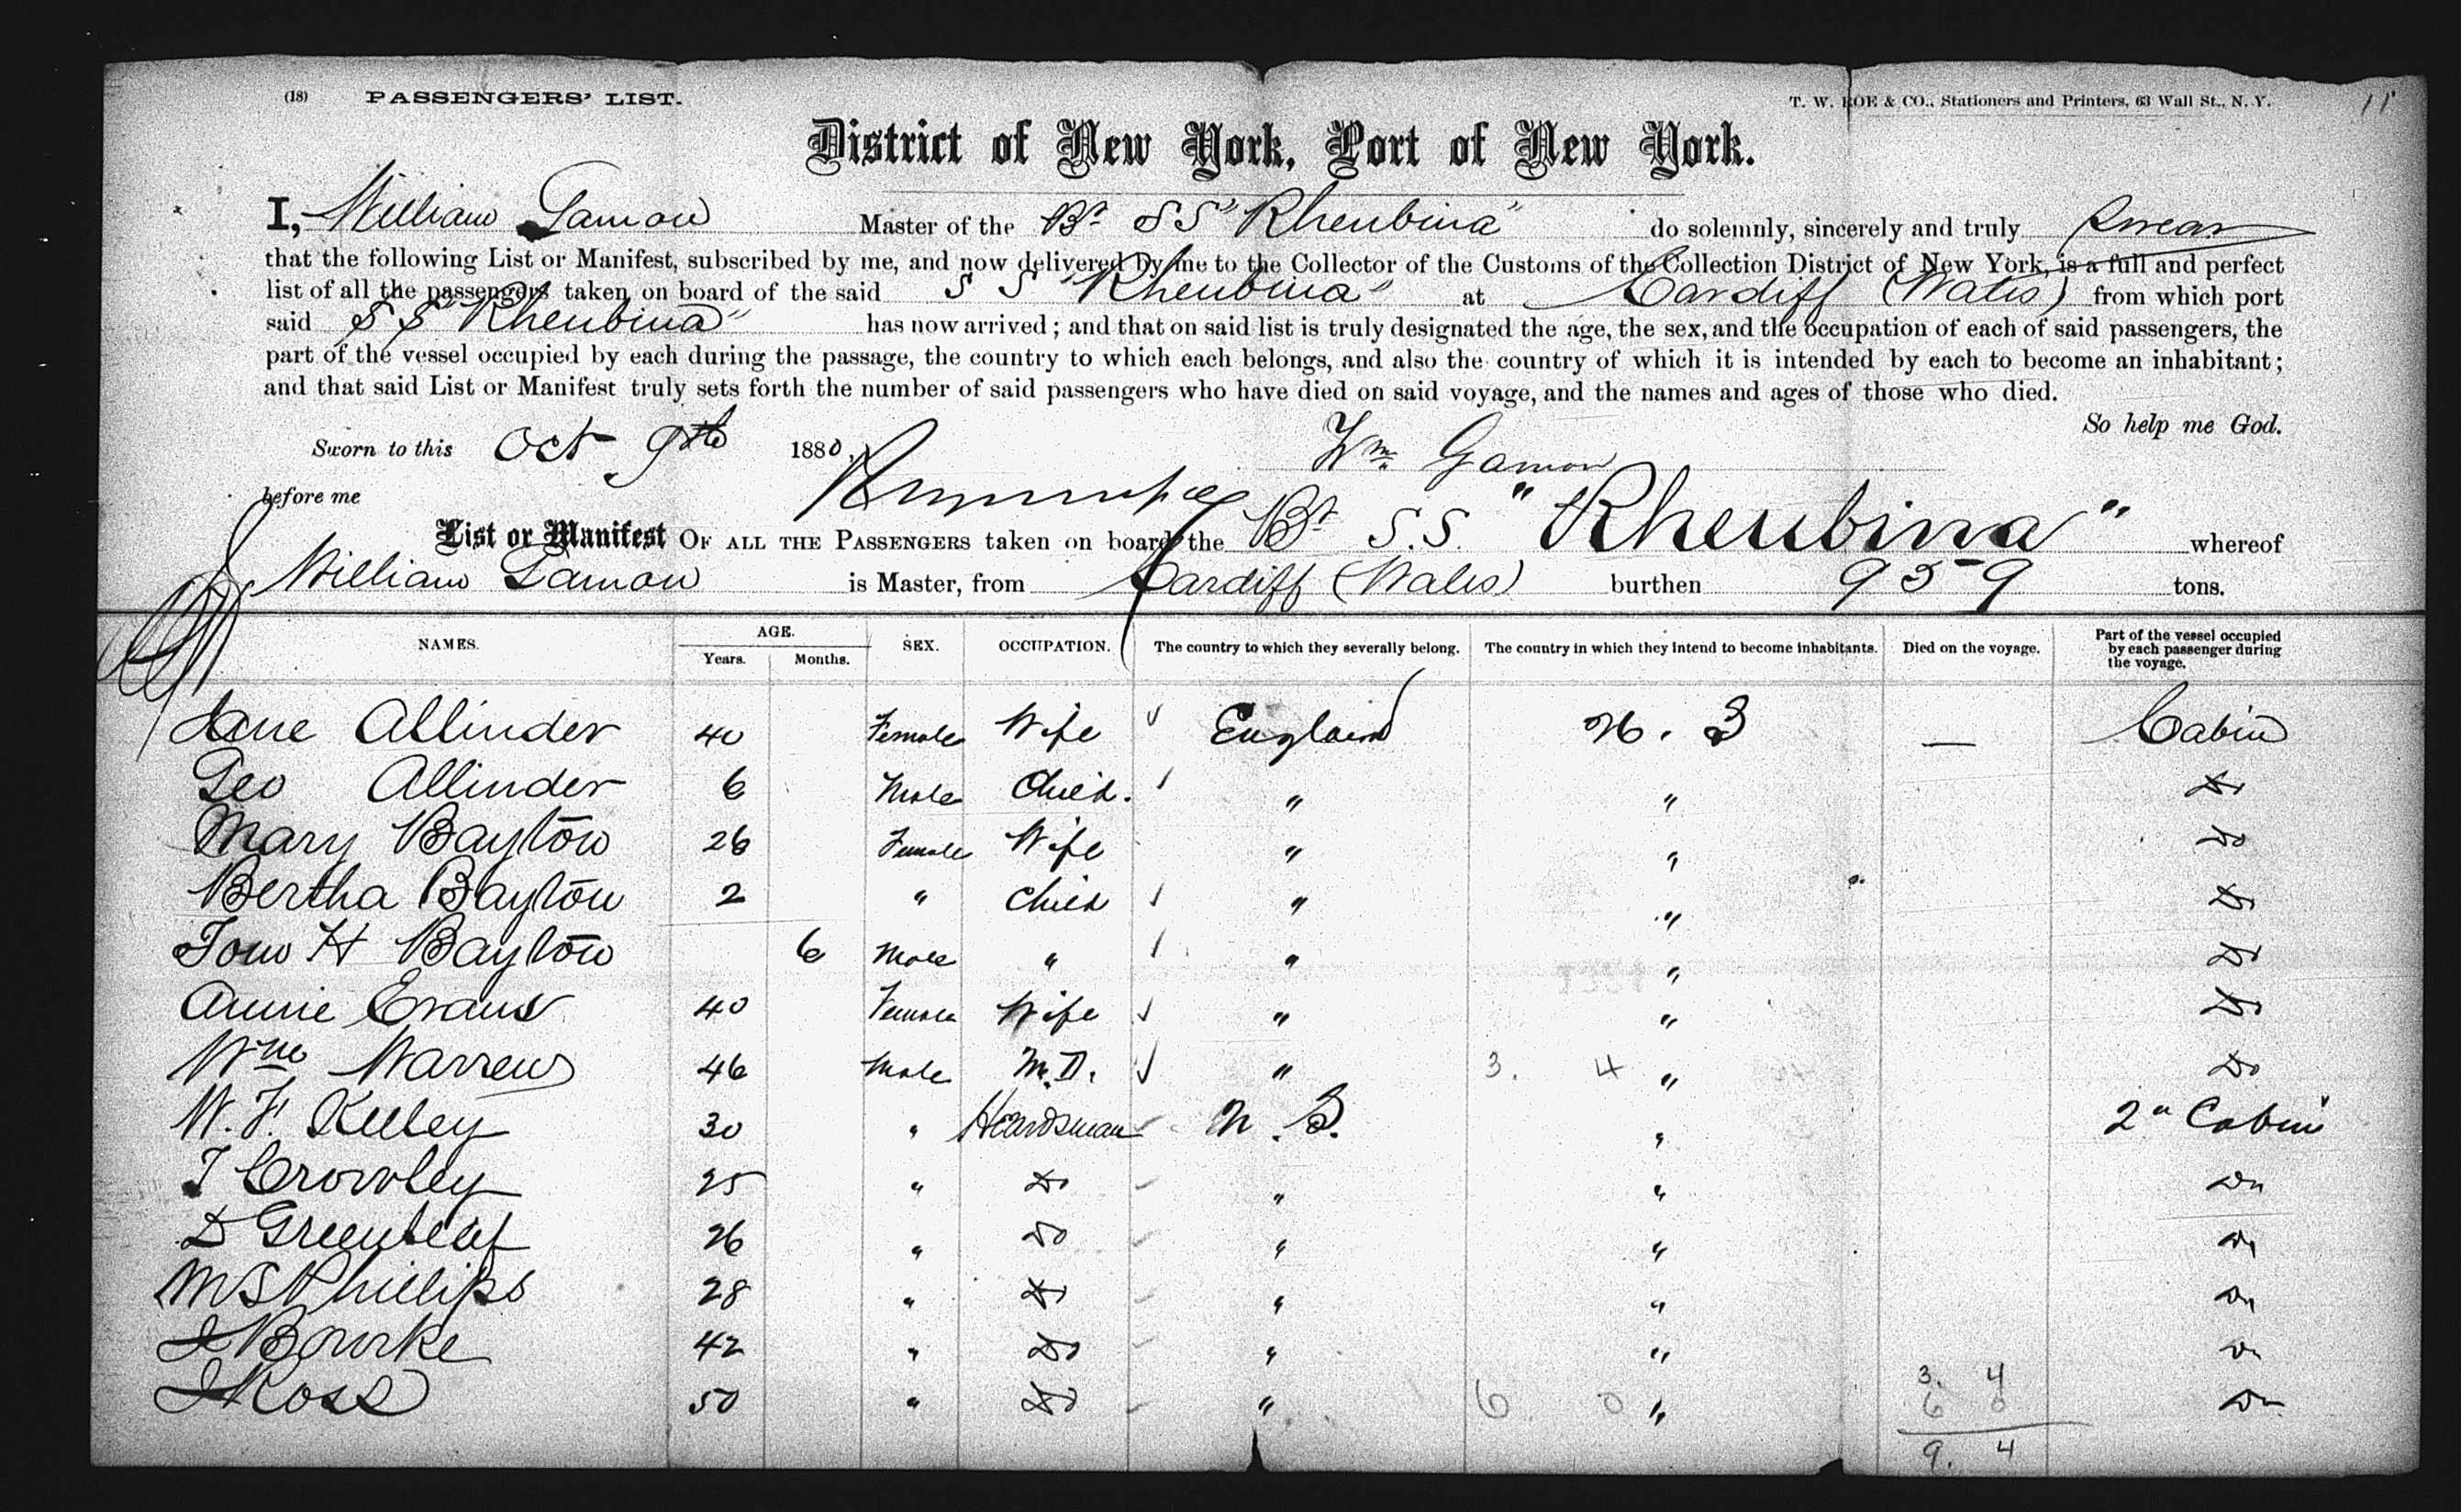 (18) PASSENGERS' LIST. T. W. ROE & CO., Stationers and Printers, 63 Wall St., N. Y. 11
District of New York, Port of New York.
I, William Gamon Master of the Bt SS "Rheubina" do solemnly, sincerely and truly swear
that the following List or Manifest, subscribed by me, and now delivered by me to the Collector of the Customs of the Collection District of New York, is a full and perfect
list of all the passengers taken on board of the said S S "Rheubina" at Cardiff (Wales) from which port
said S S "Rheubina" has now arrived; and that on said list is truly designated the age, the sex, and the occupation of each of said passengers, the
part of the vessel occupied by each during the passage, the country to which each belongs, and also the country of which it is intended by each to become an inhabitant;
and that said List or Manifest truly sets forth the number of said passengers who have died on said voyage, and the names and ages of those who died.
So help me God.
Sworn to this Oct 9th 1880, Wm Gamon
before me
List or Manifest OF ALL THE PASSENGERS taken on board the Bt S.S. "Rheubina" whereof
William Gamon is Master, from Cardiff (Wales) burthen 959 tons.
NAMES. AGE. Years. Months. SEX. OCCUPATION. The country to which they severally belong. The country in which they intend to become inhabitants. Died on the voyage. Part of the vessel occupied by each passenger during the voyage.
Jane Allinder 40 Female Wife England — Cabin
Geo Allinder 6 Male Child. " " Do
Mary Bayton 26 Female Wife " " Do
Bertha Bayton 2 " Child " " Do
Tom H Bayton 6 Male " " " Do
Annie Evans 40 Female Wife " " Do
Wm Warren 46 Male M.D. " 3. 4 " Do
W. F. Kelley 30 " Heardsman " 2" Cabin
T Crowley 25 " Do " " Do
D Greenleaf 26 " Do " " Do
M S Phillips 28 " Do " " Do
J Bourke 42 " Do " " Do
J Ross 50 " Do " 6 0 " Do
3. 4
6 0
9. 4